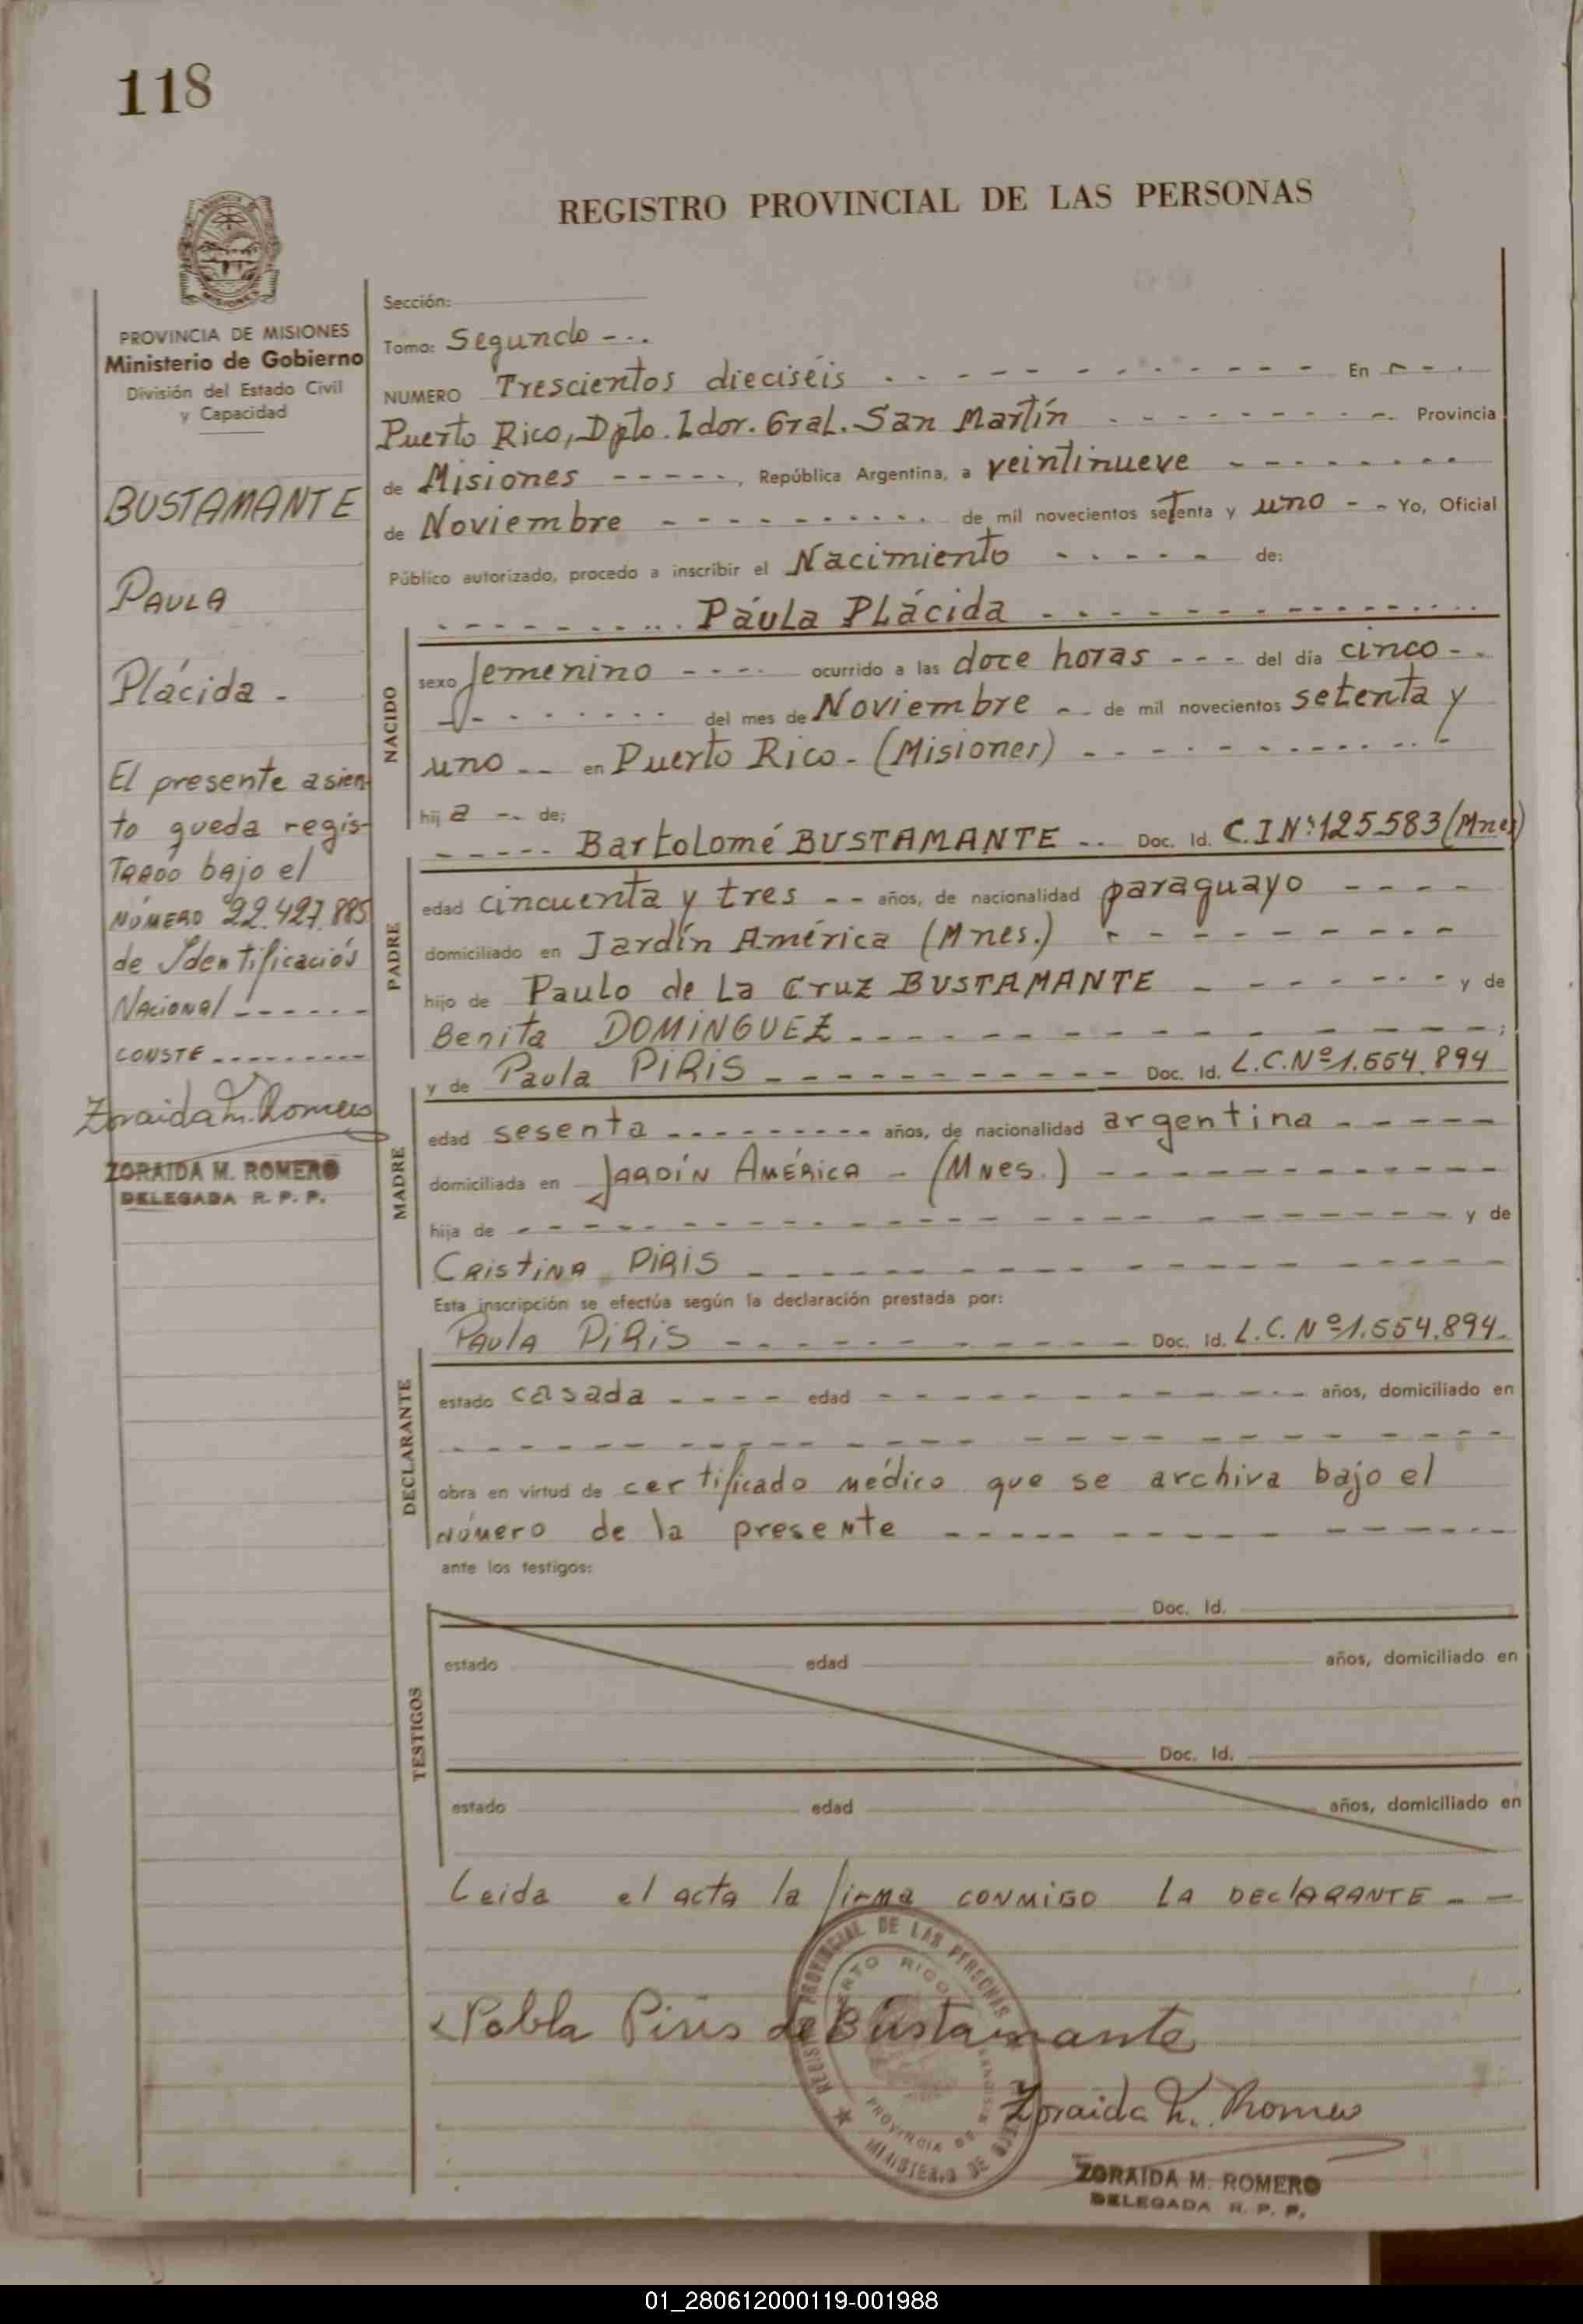 118
REGISTRO PROVINCIAL DE LAS PERSONAS
PROVINCIA DE MISIONES
Ministerio de Gobierno
División del Estado Civil
y Capacidad
BUSTAMANTE
PAULA
Plácida -
El presente asien-
to queda regis-
TRADO bajo el
NÚMERO 22.427.885
de Identificación
NACIONAL ------
CONSTE ---------
Zoraida M. Romero
ZORAIDA M. ROMERO
DELEGADA R. P. P.
Sección:
Tomo: Segundo - - -
NUMERO Trescientos dieciséis - - - - - - - - - - - En - - -
Puerto Rico, Dpto. Ldor. Gral. San Martín - - - - - - - - Provincia
de Misiones - - - - -, República Argentina, a veintinueve - - - - - - - -
de Noviembre - - - - - - - - - - de mil novecientos setenta y uno - - Yo, Oficial
Público autorizado, procedo a inscribir el Nacimiento - - - - - de:
- - - - - - - - - Páula Plácida - - - - - - - - - - - - - - -
NACIDO
sexo femenino - - - - ocurrido a las doce horas - - - del día cinco - -
- - - - - - - - del mes de Noviembre - - de mil novecientos setenta y
uno - - en Puerto Rico - (Misiones) - - - - - - - - - - - -
hij a - - de;
- - - - - Bartolomé BUSTAMANTE - - Doc. Id. C.I Nº: 125.583 (Mnes)
PADRE
edad cincuenta y tres - - años, de nacionalidad paraguayo - - - -
domiciliado en Jardín América (Mnes.) - - - - - - - - -
hijo de Paulo de La Cruz BUSTAMANTE - - - - - - - y de
Benita DOMINGUEZ - - - - - - - - - - - - - - - ;
y de Paula PIRIS - - - - - - - - - - - Doc. Id. L.C. Nº 1.554.894
MADRE
edad sesenta - - - - - - - - - años, de nacionalidad argentina - - - - -
domiciliada en JARDÍN AMÉRICA - (MNES.) - - - - - - - - - - -
hija de - - - - - - - - - - - - - - - - - - - - y de
CRISTINA PIRIS - - - - - - - - - - - - - - - -
Esta inscripción se efectúa según la declaración prestada por:
PAULA PIRIS - - - - - - - - - - Doc. Id. L.C. Nº 1.554.894.
DECLARANTE
estado casada - - - - edad - - - - - - - - - - - años, domiciliado en
- - - - - - - - - - - - - - - - - - - - - - -
obra en virtud de certificado médico que se archiva bajo el
número de la presente - - - - - - - - - - - - - -
ante los testigos:
TESTIGOS
Doc. Id.
estado edad años, domiciliado en
Doc. Id.
estado edad años, domiciliado en
Leida el acta la firma conmigo LA DECLARANTE - -
Pabla Piris de Bustamante
REGISTRO PROVINCIAL DE LAS PERSONAS
PUERTO RICO
PROVINCIA DE MISIONES
MINISTERIO DE GOBIERNO
Zoraida M. Romero
ZORAIDA M. ROMERO
DELEGADA R. P. P.
01_280612000119-001988